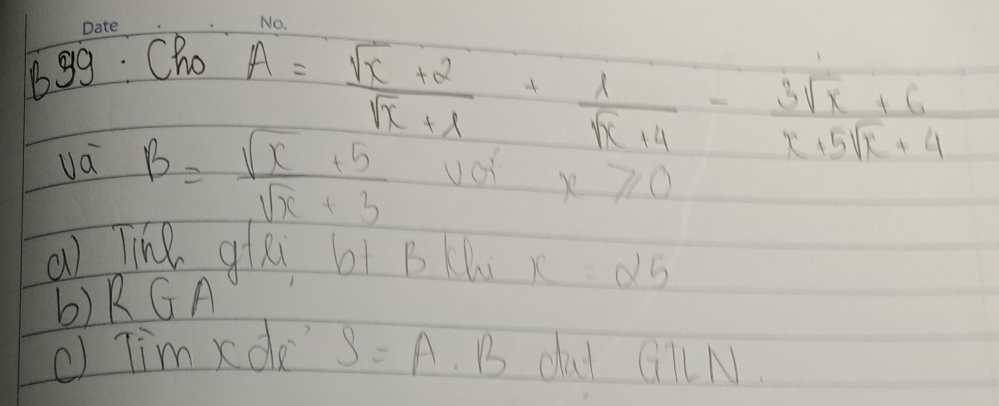 Date . . No.
B99. Cho A = (√x + 2)/(√x + 1) + 1/(√x + 4) - (3√x + 6)/(x + 5√x + 4)
và B = (√x + 5)/(√x + 3) với x ⩾ 0
a) Tính gtri bt B khi x = 25
b) R G A
c) Tìm x để S = A.B đạt GTLN.